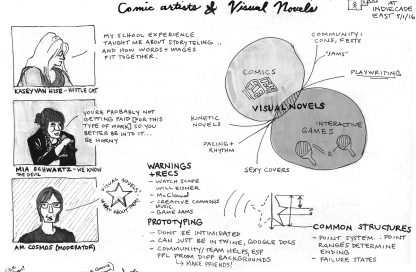 Comic artists & Visual Novels
AT
INDIECADE
EAST 5/1/16
MY SCHOOL EXPERIENCE
TAUGHT ME ABOUT STORYTELING..
AND HOW WORDS + IMAGES
FIT TOGETHER.
KASEY VAN HISE - HUSTLE CAT
YOU'RE PROBABLY NOT
GETTING PAID [FOR THIS
TYPE OF WORK] SO YOU
BETTER BE INTO IT...
BE HORNY
MIA SCHWARTZ - WE KNOW
THE DEVIL
VISUAL NOVELS
WHAT ABOUT THEM?
AM COSMOS (MODERATOR)
COMMUNITY:
CONS, FESTS
"JAMS"
PLAYWRITING
COMICS
VISUAL NOVELS
INTERACTIVE
GAMES
KINETIC
NOVELS
PACING +
RHYTHM
SEXY COVERS
WARNINGS
+ RECS
- WATCH SCOPE
- WILL EISNER
- McCLOUD
- CREATIVE COMMONS
MUSIC
- GAME JAMS
PROTOTYPING
- DONT BE INTIMIDATED
- CAN JUST BE IN TWINE, GOOGLE DOCS
- COMMUNITY/TEAM HELPS, ESP
PPL FROM DIFF BACKGROUNDS
↳ MAKE FRIENDS!
COMMON STRUCTURES
- POINT SYSTEM. POINT
RANGES DETERMINE
ENDING
- FAILURE STATES